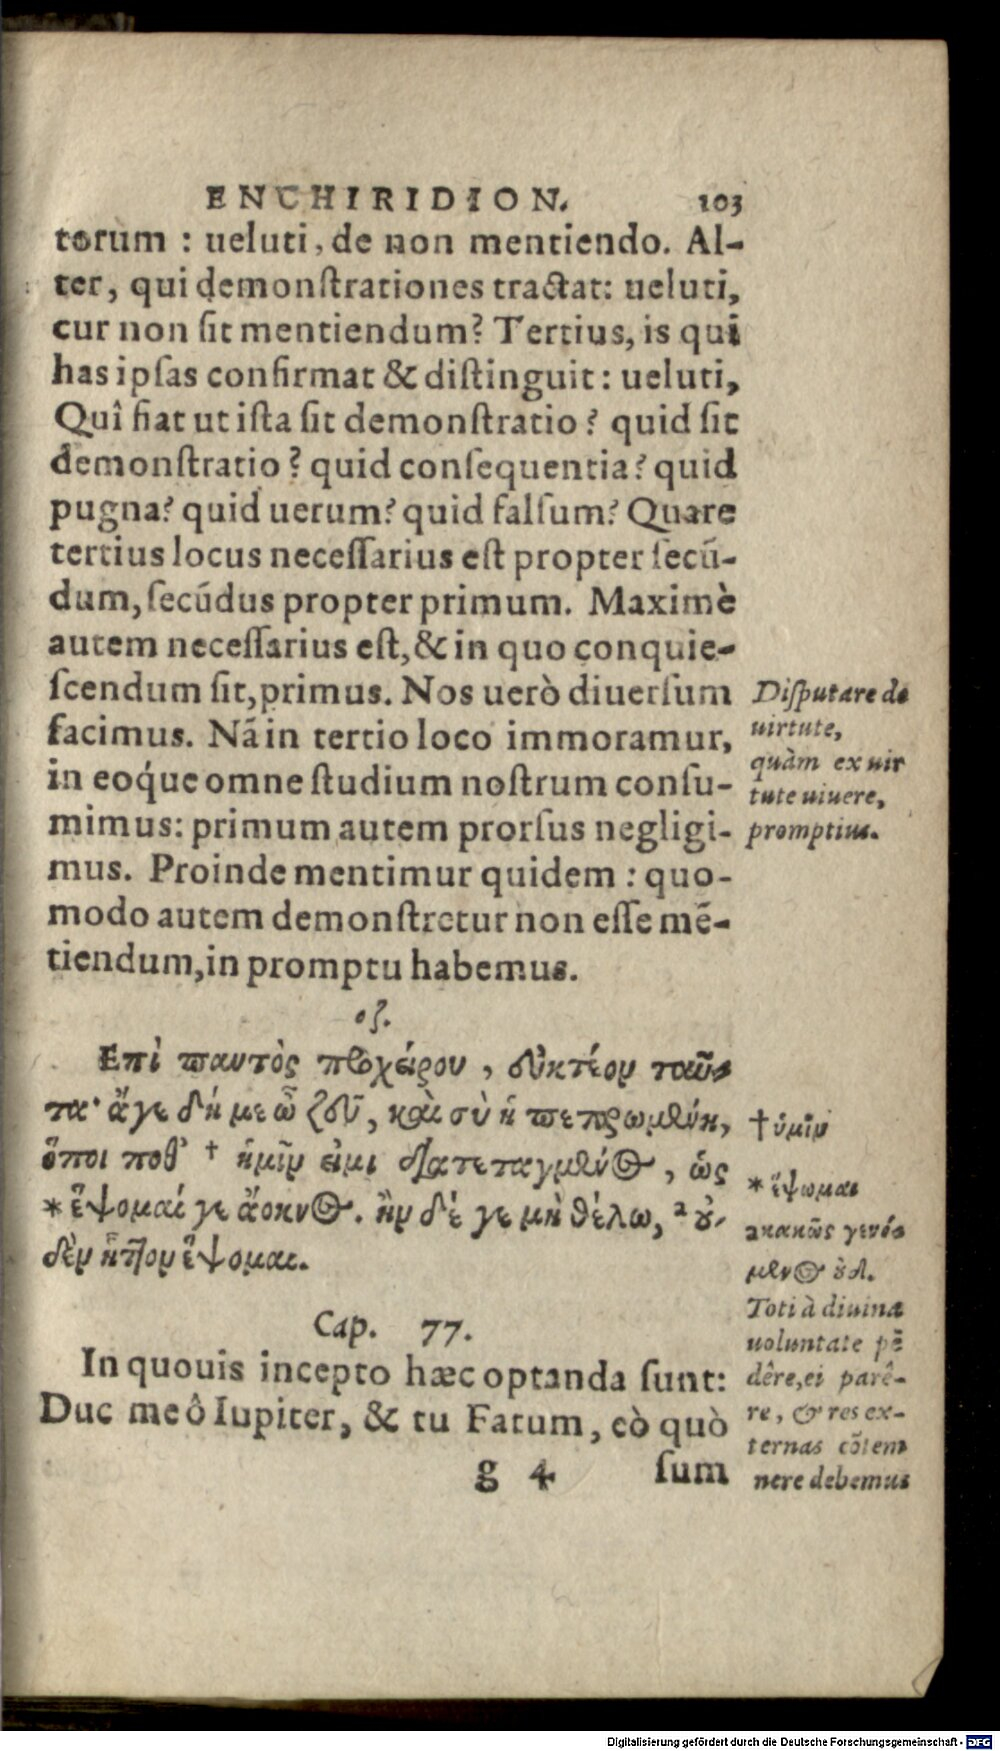 ENCHIRIDION. 103
torum : ueluti, de non mentiendo. Al-
ter, qui demonſtrationes tractat: ueluti,
cur non ſit mentiendum? Tertius, is qui
has ipſas confirmat & diſtinguit: ueluti,
Quî fiat ut iſta ſit demonſtratio? quid ſit
demonſtratio? quid conſequentia? quid
pugna? quid uerum? quid falſum? Quare
tertius locus neceſſarius eſt propter ſecū-
dum, ſecūdus propter primum. Maximè
autem neceſſarius eſt, & in quo conquie-
ſcendum ſit, primus. Nos uerò diuerſum
facimus. Nā in tertio loco immoramur,
in eoq́ue omne ſtudium noſtrum conſu-
mimus: primum autem prorſus negligi-
mus. Proinde mentimur quidem : quo-
modo autem demonſtretur non eſſe mē-
tiendum, in promptu habemus.
Diſputare de
uirtute,
quàm ex uir
tute uiuere,
promptius.
οζ.
Επὶ παντὸς προχείρου, εὐκτέον ταῦ-
τα· ἄγε δή με ὦ ζεῦ, καὶ σὺ ἡ πεπρωμένη,
ὅποι ποθ' † ἡμῖν εἰμι διατεταγμένος, ὡς
* ἕψομαί γε ἄοκνος. ἢν δέ γε μὴ θέλω, ² οὐ-
δὲν ἧττον ἕψομαι.
† ὑμῖν
* ἕψωμαι
2 κακῶς γενό-
μενος οὐδ.
Toti à diuina
uoluntate pē
dêre, ei parê-
re, & res ex-
ternas cōtem
nere debemus
Cap. 77.
In quouis incepto hæc optanda ſunt:
Duc me ô Iupiter, & tu Fatum, eò quò
g 4 ſum
Digitalisierung gefördert durch die Deutsche Forschungsgemeinschaft - DFG